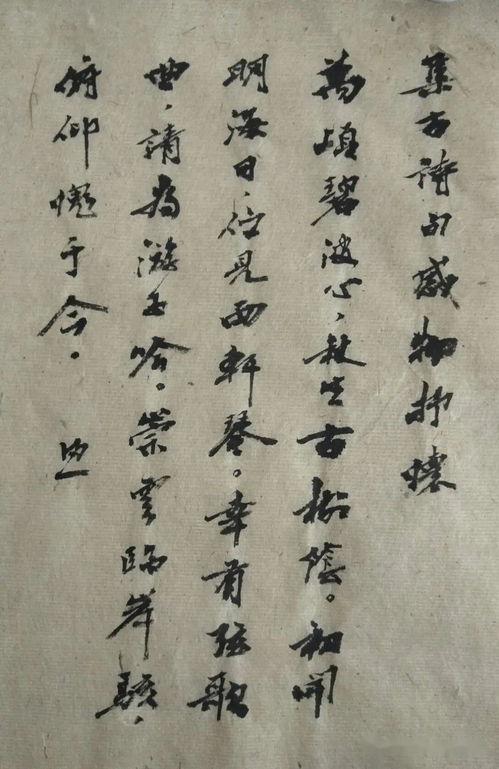 集古詩句感物抒懷
萬頃碧波心，生古陰。初聞
明海日，見西軒琴。幸有弦歌
曲，請為游子吟。崇雲臨岸駭，
俯仰愧于今。